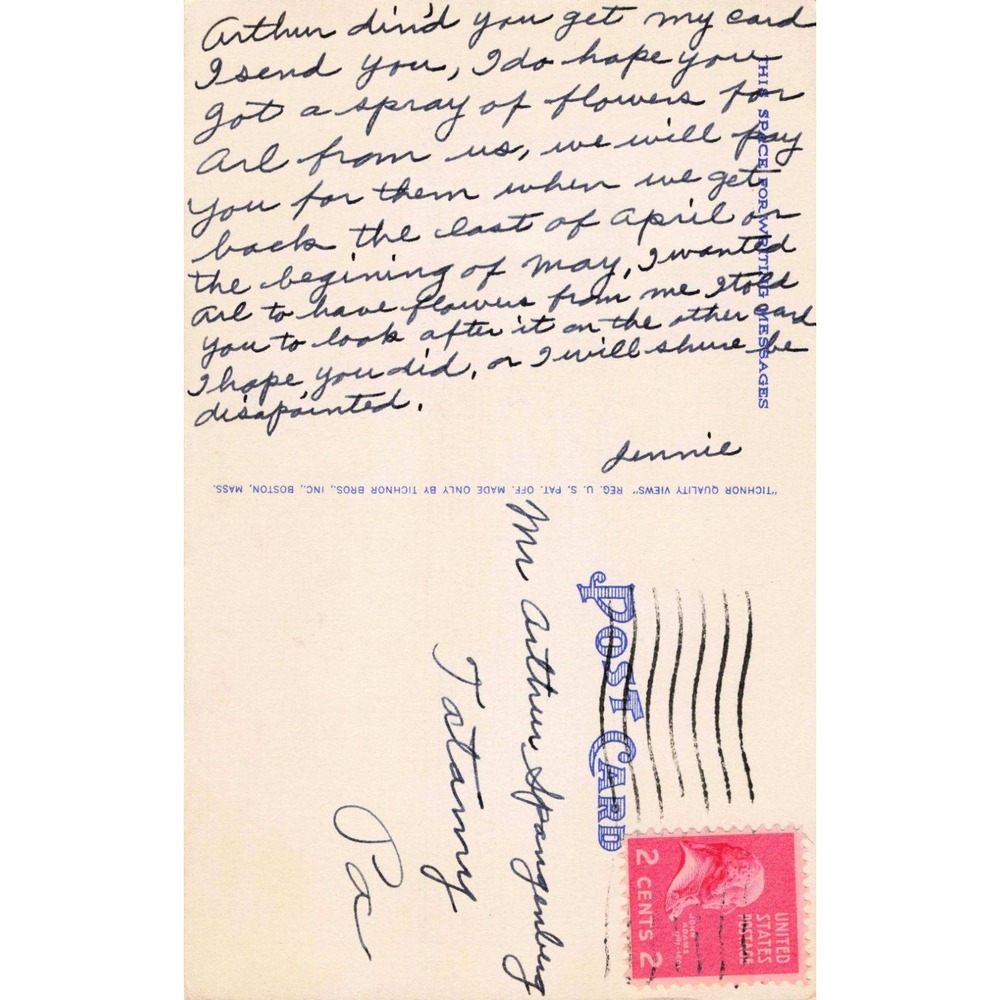 Arthur din'd you get my card
I send you, I do hope you
got a spray of flowers for
Arl from us, we will pay
you for them when we get
back the last of April or
the begining of May, I wanted
Arl to have flowers from me I told
you to look after it on the other card
I hope you did, or I will shure be
disapointed.
Jennie
THIS SPACE FOR WRITING MESSAGES
"TICHNOR QUALITY VIEWS" REG. U. S. PAT. OFF. MADE ONLY BY TICHNOR BROS., INC., BOSTON, MASS.
POST CARD
Mr Arthur Spangenburg
Tatamy
Pa
UNITED
STATES
POSTAGE
JOHN
ADAMS
2 CENTS 2